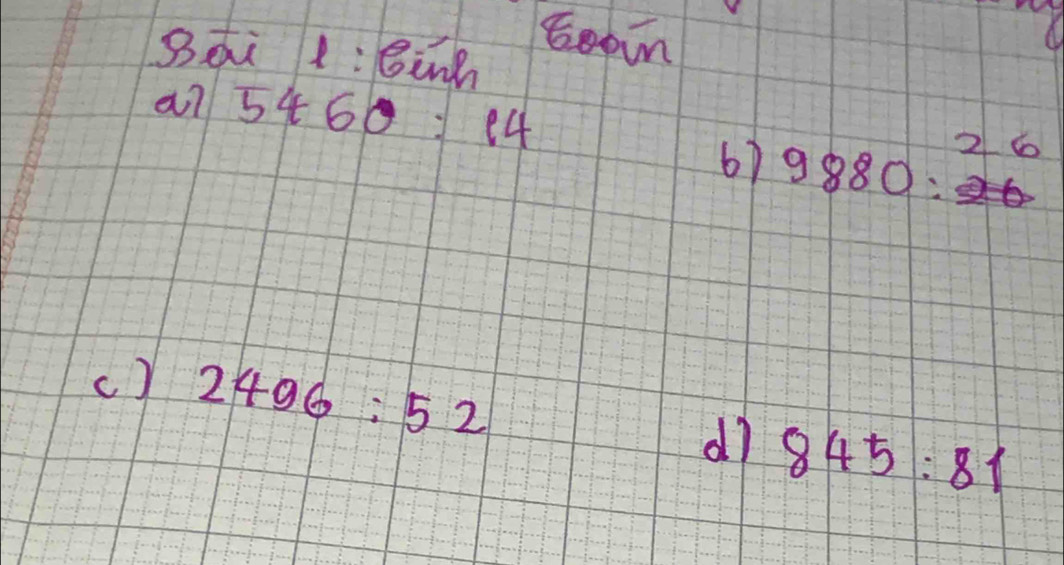 Toán
Bài 1: Tính
a) 5460 : 14
b) 9880 : 26
c) 2496 : 52
d) 845 : 81